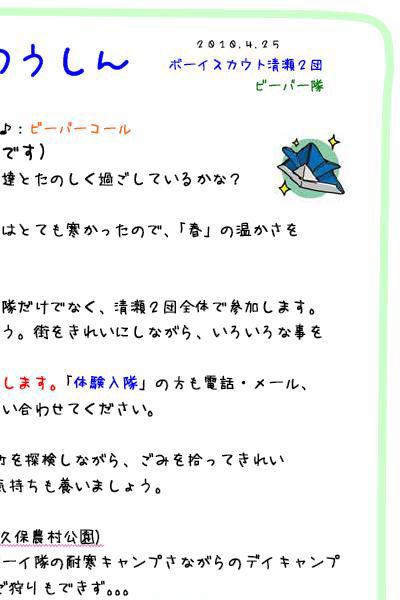 2010.4.25
うしん
ボーイスカウト清瀬2団
ビーバー隊
♪:ビーバーコール
です)
達とたのしく過ごしているかな?
はとても寒かったので、「春」の温かさを
隊だけでなく、清瀬2団全体で参加します。
う。街をきれいにしながら、いろいろな事を
します。「体験入隊」の方も電話・メール、
い合わせてください。
を探検しながら、ごみを拾ってきれい
気持ちも養いましょう。
久保農村公園)
ーイ隊の耐寒キャンプさながらのデイキャンプ
狩りもできず。。。